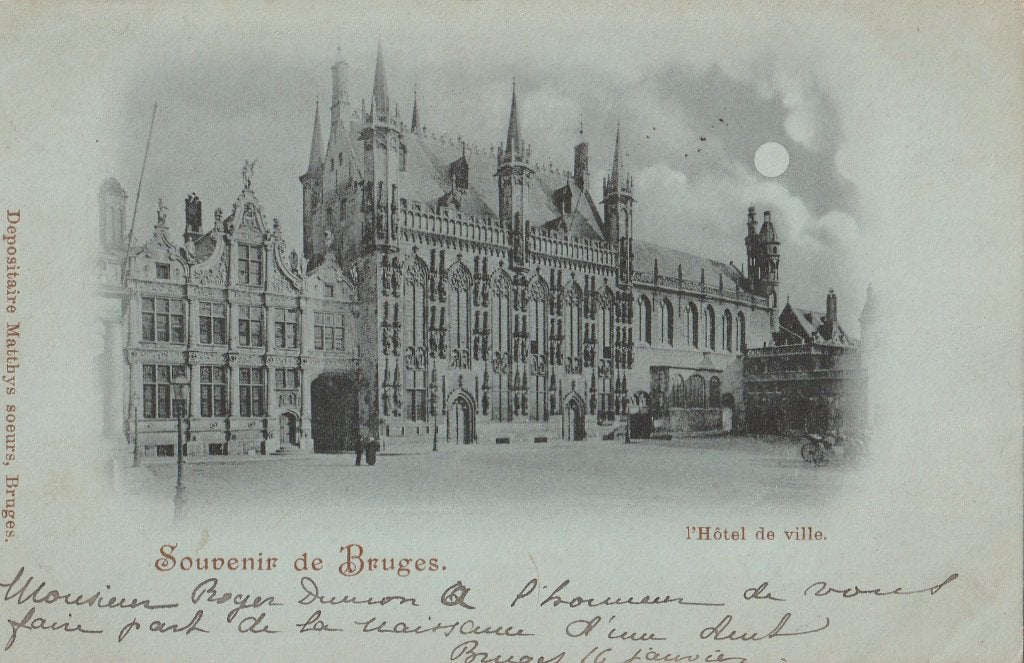 l'Hôtel de ville.
Souvenir de Bruges.
Depositaire Matthys soeurs, Bruges.
Monsieur Roger a l'honneur de vous
faire part de la naissance d'une dent
Bruges 16 janvier